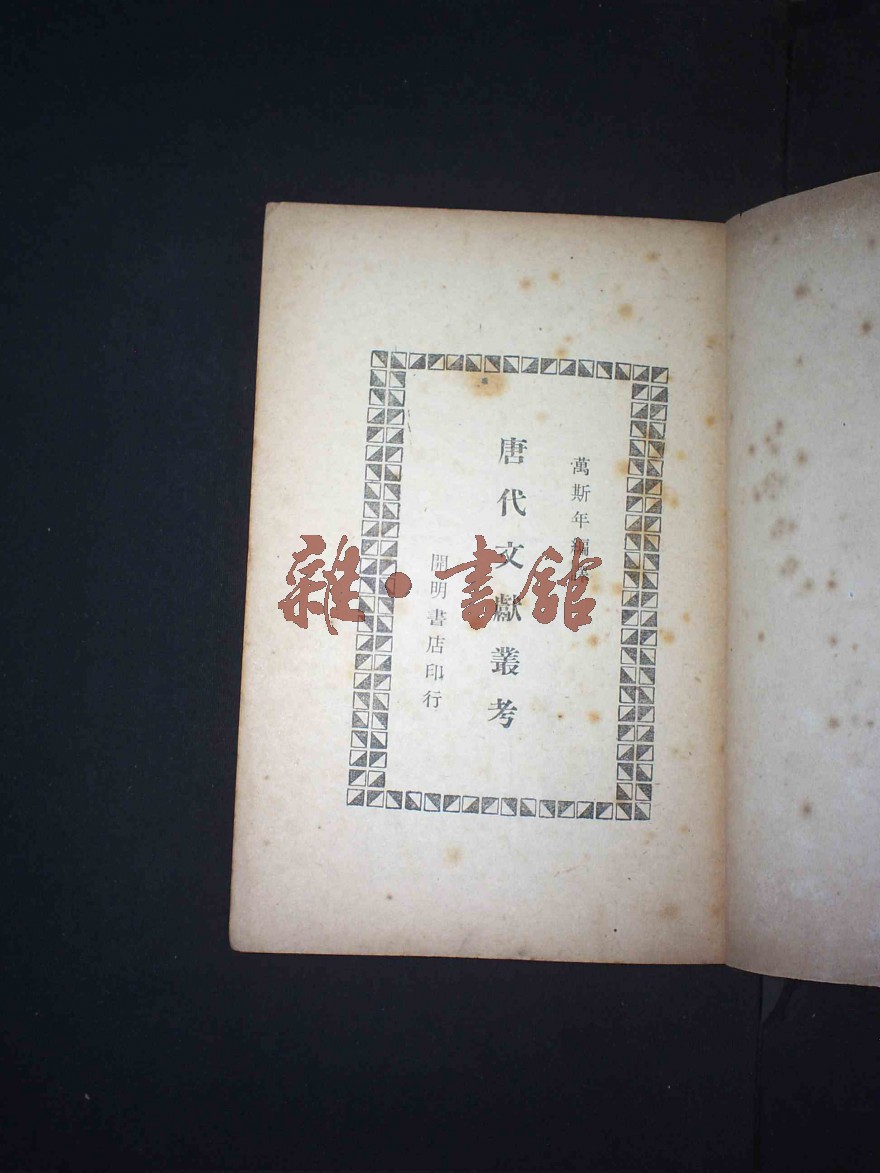 萬斯年編譯
唐代文獻叢考
開明書店印行
雜·書館